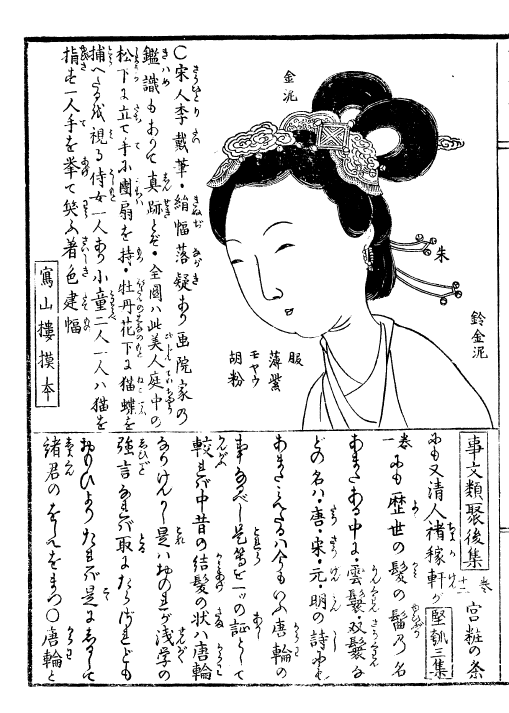 金泥
朱
鈴金泥
服
薄紫
モヤウ
胡粉
〇宋人李戴筆・絹幅落疑あり画院家の
鑑識もありて真跡とぞ・全圖ハ此美人庭中の
松下に立て手に團扇を持・牡丹花下に猫蝶を
捕へたるを視る侍女一人あり小童二人一人ハ猫を
指す一人手を挙て笑ふ着色建幅
寫山樓摸本
事文類聚後集 巻十二 宮粧の条
にも又清人褚稼軒が堅瓠三集
巻一にも歴世の髪の髷乃名
あまたある中に・雲鬟双鬟な
どの名ハ・唐・宋・元・明の詩にも
あまたみえたるハ今もいふ唐輪の
事なるべし是等を一ツの証として
較れば中昔の結髪の状ハ唐輪
なりけんかし是ハおのれが浅学の
強言なれバ取にたらざれども
おもひよりたれば是にしるして
諸君のをしへをまつ〇唐輪と